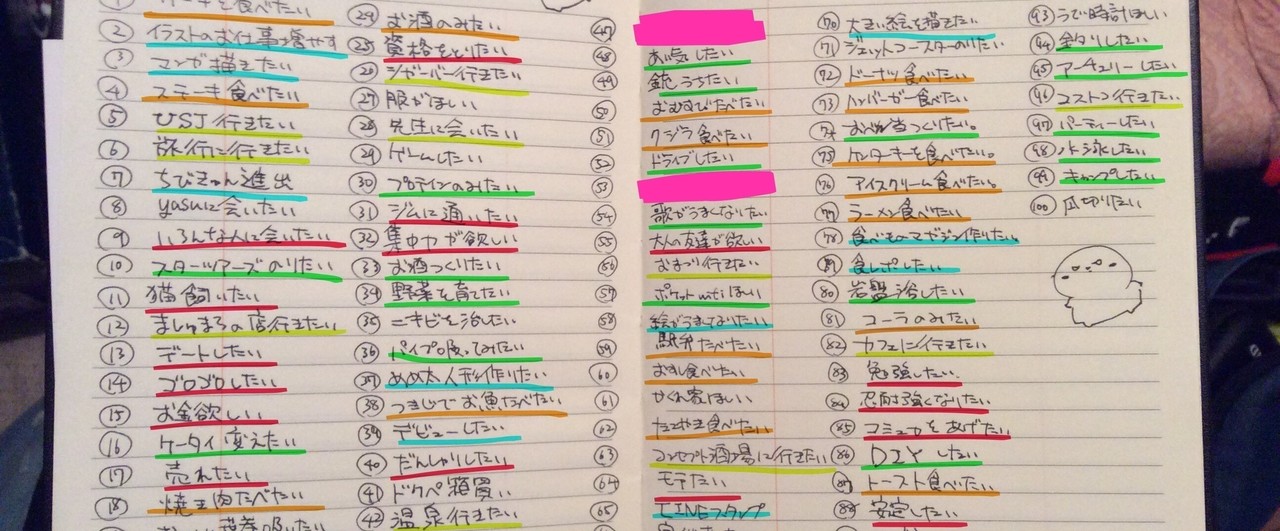 ①
ケーキを食べたい
② イラストのお仕事増やす
③ マンガ描きたい
④ ステーキ食べたい
⑤ USJ行きたい
⑥ 旅行に行きたい
⑦ ちびきゅん進出
⑧ yasuに会いたい
⑨ いろんな人に会いたい
⑩ スターツアーズのりたい
⑪ 猫飼いたい
⑫ ましゅまろの店行きたい
⑬ デートしたい
⑭ ゴロゴロしたい
⑮ お金欲しい
⑯ ケータイ変えたい
⑰ 売れたい
⑱ 焼き肉たべたい
㉔ お酒のみたい
㉕ 資格をとりたい
㉖ シガーバー行きたい
㉗ 服がほしい
㉘ 先生に会いたい
㉙ ゲームしたい
㉚ プロテインのみたい
㉛ ジムに通いたい
㉜ 集中力が欲しい
㉝ お酒つくりたい
㉞ 野菜を育てたい
㉟ ニキビを治したい
㊱ パイプ吸ってみたい
㊲ めめ太人形作りたい
㊳ つきじでお魚たべたい
㊴ デビューしたい
㊵ だんしゃりしたい
㊶ ドクペ箱買い
㊷ 温泉行きたい
㊼
㊽ あ気したい
㊾ 銃うちたい
㊿ おむすびたべたい
51 クジラ食べたい
52 ドライブしたい
53
54 歌がうまくなりたい
55 大人の友達が欲しい
56 おまつり行きたい
57 ポケットwifiほしい
58 絵がうまくなりたい
59 駅弁たべたい
60 おすし食べたい
61 かくれ家ほしい
62 たこやき食べたい
63 コンセプト酒場に行きたい
64 モテたい
65 LINEスタンプ
70 大きい絵を描きたい
71 ジェットコースターのりたい
72 ドーナツ食べたい
73 ハンバーガー食べたい
74 おべん当つくりたい。
75 ケンタッキーを食べたい。
76 アイスクリーム食べたい。
77 ラーメン食べたい
78 食べモノマガジン作りたい。
79 食レポしたい
80 岩盤浴したい
81 コーラのみたい
82 カフェに行きたい
83 勉強したい.
84 忍耐強くなりたい
85 コミュ力をあげたい
86 DIYしたい
87 トースト食べたい
88 安定したい
93 うで時計ほしい
94 釣りしたい
95 アーチェリーしたい
96 コストコ行きたい
97 パーティーしたい
98 川で泳したい
99 キャンプしたい
100 爪切りたい